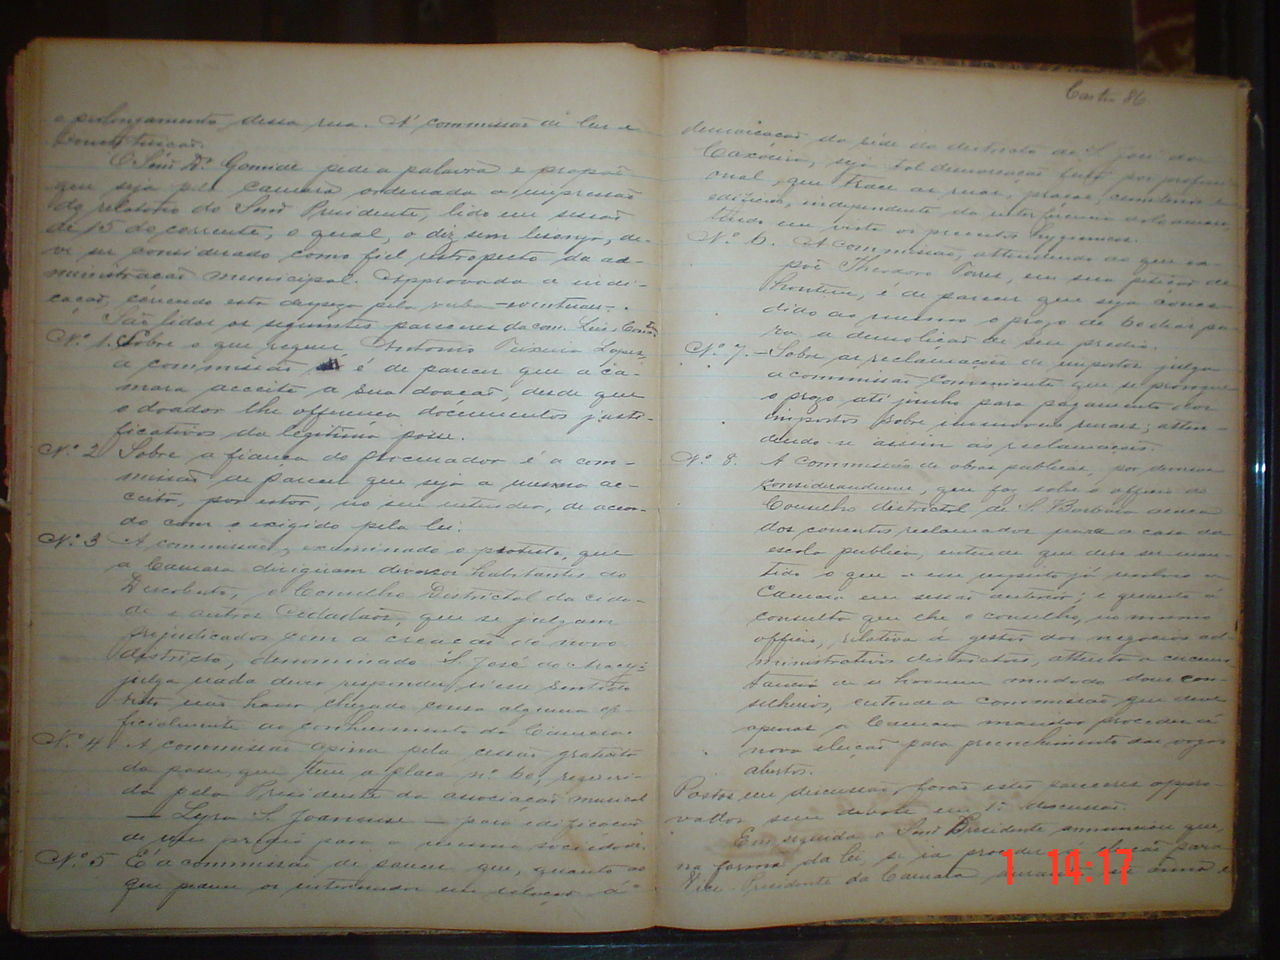 o prolongamento dessa rua. Á commissão de leis e
Constituição.
O Senr. Dr. Gomide pede a palavra e propõe
que seja pela Camara ordenada a impressão
do relatorio do Senr Presidente, lido em sessão
de 15 do corrente, o qual, o diz sem lisonja, de-
ve ser considerado como fiel retrospecto da ad-
ministração municipal. Approvada a indi-
cação, correndo esta despeza pela verba - eventuaes -.
São lidos os seguintes pareceres da com. Leis e Const.
Nº 1. Sobre o que requer Antonio Teixeira Lopes,
a commissão é de parecer que a ca-
mara acceite a sua doação, desde que
o doador lhe offereça documentos justi-
ficativos da legitima posse.
Nº 2 Sobre a fiança do procurador é a com-
missão de parecer que seja a mesma ac-
ceita, por estar, no seu entender, de accor-
do com o exigido pela lei.
Nº 3 A commissão, examinado o protesto, que
a Camara dirigiram diversos habitantes do
Descoberto, o Conselho Districtal da cida-
de e outros cidadãos, que se julgam
prejudicados com a creação do novo
districto, denominado S. José do
julga nada dever responder
visto não haver chegado cousa alguma of-
ficialmente ao conhecimento da Camara.
Nº 4 A commissão opina pela cessão gratuita
da posse, que tem a placa nº 60, requeri-
da pelo Presidente da associação musical
— Lyra S. Joanense — para edificação
de um predio para a mesma sociedade.
Nº 5 É a commissão de parecer que, quanto ao
que pedem os
86
demarcação da séde do districto de S. José da
Caxoeira, seja tal demarcação feita por profissi-
onal, que trace as ruas, praças, cemiterio e
edificios, independente da interferencia
tendo em vista os preceitos hygienicos.
Nº 6. A Commissão, attendendo ao que ex-
põe Theodoro Torres, em sua petição de
é de parecer que seja conce-
dido ao mesmo o prazo de 60 dias pa-
ra a demolição de seu predio.
Nº 7. - Sobre as reclamações de impostos julga
a commissão conveniente que se prorogue
o prazo até junho para pagamento dos
impostos sobre immoveis ruraes, atten-
dendo-se assim as reclamações.
Nº 8. A commissão de obras publicas, por diversos
considerandums, que faz sobre o officio do
Conselho districtal de S. Barbara acerca
dos concertos reclamados para a casa da
escola publica, entende que deve ser man-
tido o que a esse respeito já resolveu a
Camara em sessão anterior; e quanto á
consulta que lhe o conselho, no mesmo
officio, relativa á gestão dos negocios ad-
ministrativos districtaes, attenta a circums-
tancia de se haverem mudado dous con-
selheiros, entende a commissão que deve
apenas a Camara mandar proceder á
nova eleição para preenchimento das vagas
abertas.
Postos em discussão, forão estes pareceres appro-
vados sem debate em 1ª discussão.
Em seguida o Senr Presidente annunciou que,
na forma da lei, se ia proceder á eleição para
Vice-Presidente da Camara
1 14:17